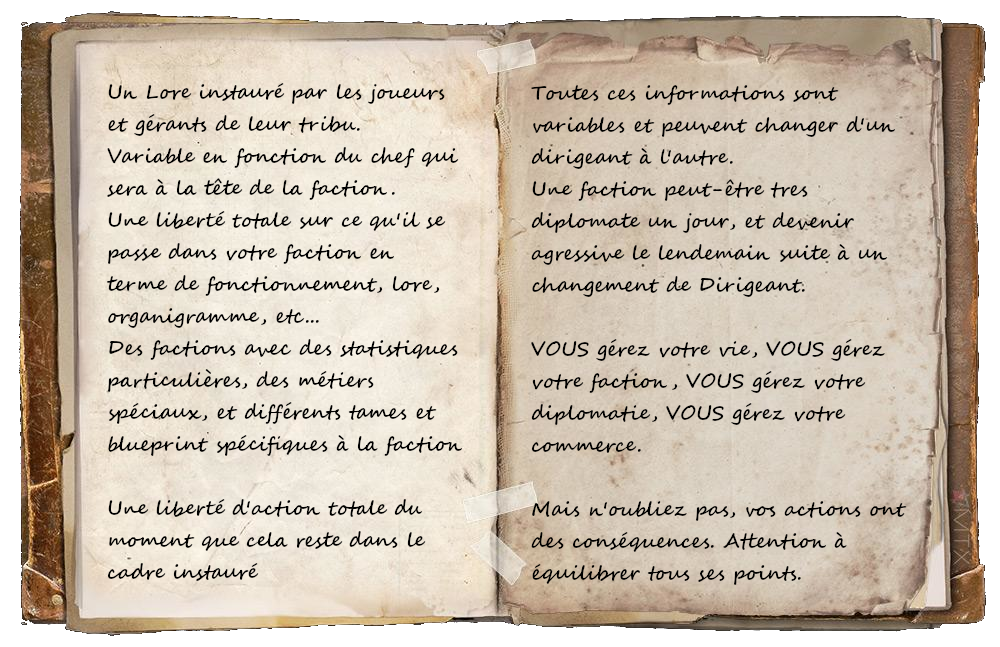 Un Lore instauré par les joueurs
et gérants de leur tribu.
Variable en fonction du chef qui
sera à la tête de la faction.
Une liberté totale sur ce qu'il se
passe dans votre faction en
terme de fonctionnement, lore,
organigramme, etc...
Des factions avec des statistiques
particulières, des métiers
spéciaux, et différents tames et
blueprint spécifiques à la faction
Une liberté d'action totale du
moment que cela reste dans le
cadre instauré
Toutes ces informations sont
variables et peuvent changer d'un
dirigeant à l'autre.
Une faction peut-être tres
diplomate un jour, et devenir
agressive le lendemain suite à un
changement de Dirigeant.
VOUS gérez votre vie, VOUS gérez
votre faction, VOUS gérez votre
diplomatie, VOUS gérez votre
commerce.
Mais n'oubliez pas, vos actions ont
des conséquences. Attention à
équilibrer tous ses points.